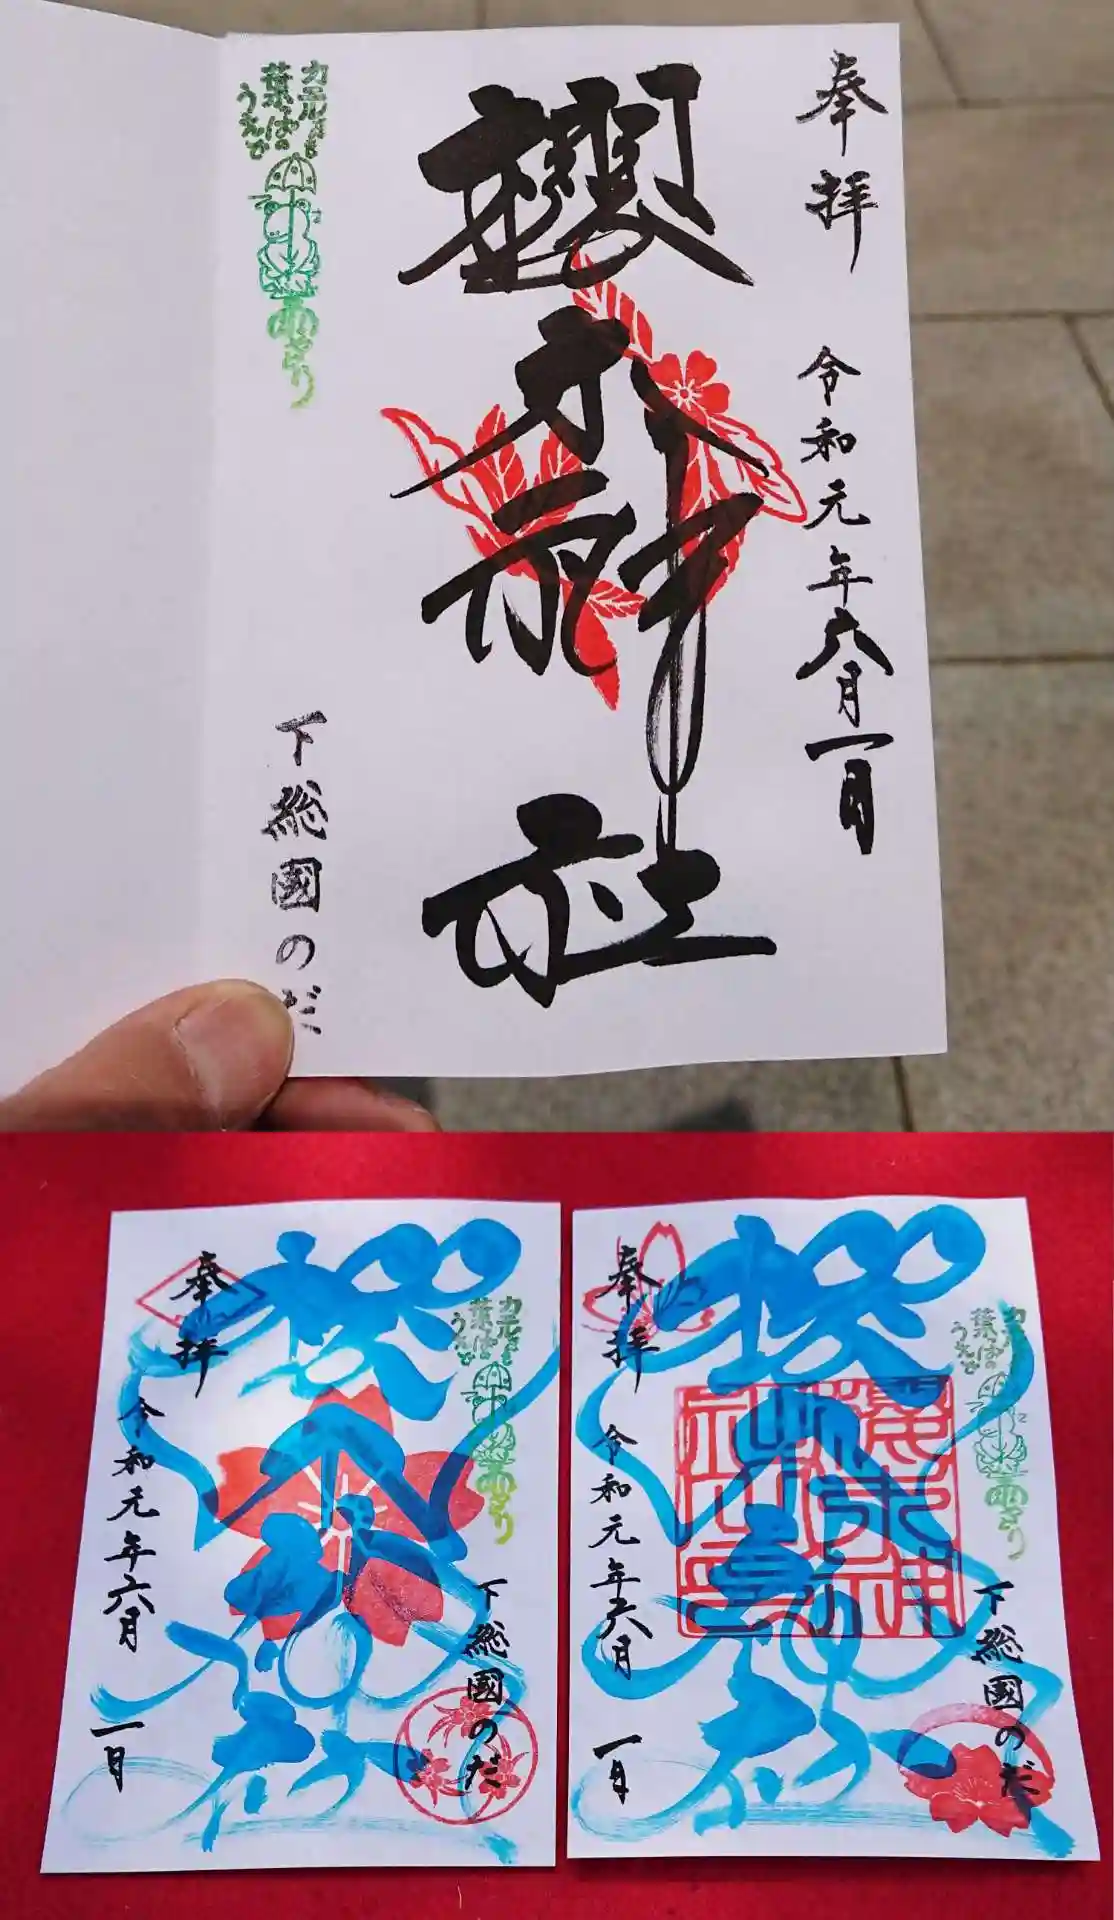 奉拝
令和元年六月一日
櫻木神社
カエルさま
葉っぱの
うえで
雨やどり
下総國のだ
奉拝
令和元年六月
一日
櫻木神社
カエルさま
葉っぱの
うえで
雨やどり
下総國のだ
奉拝
令和元年六月
一日
櫻木神社
カエルさま
葉っぱの
うえで
雨やどり
下総國のだ